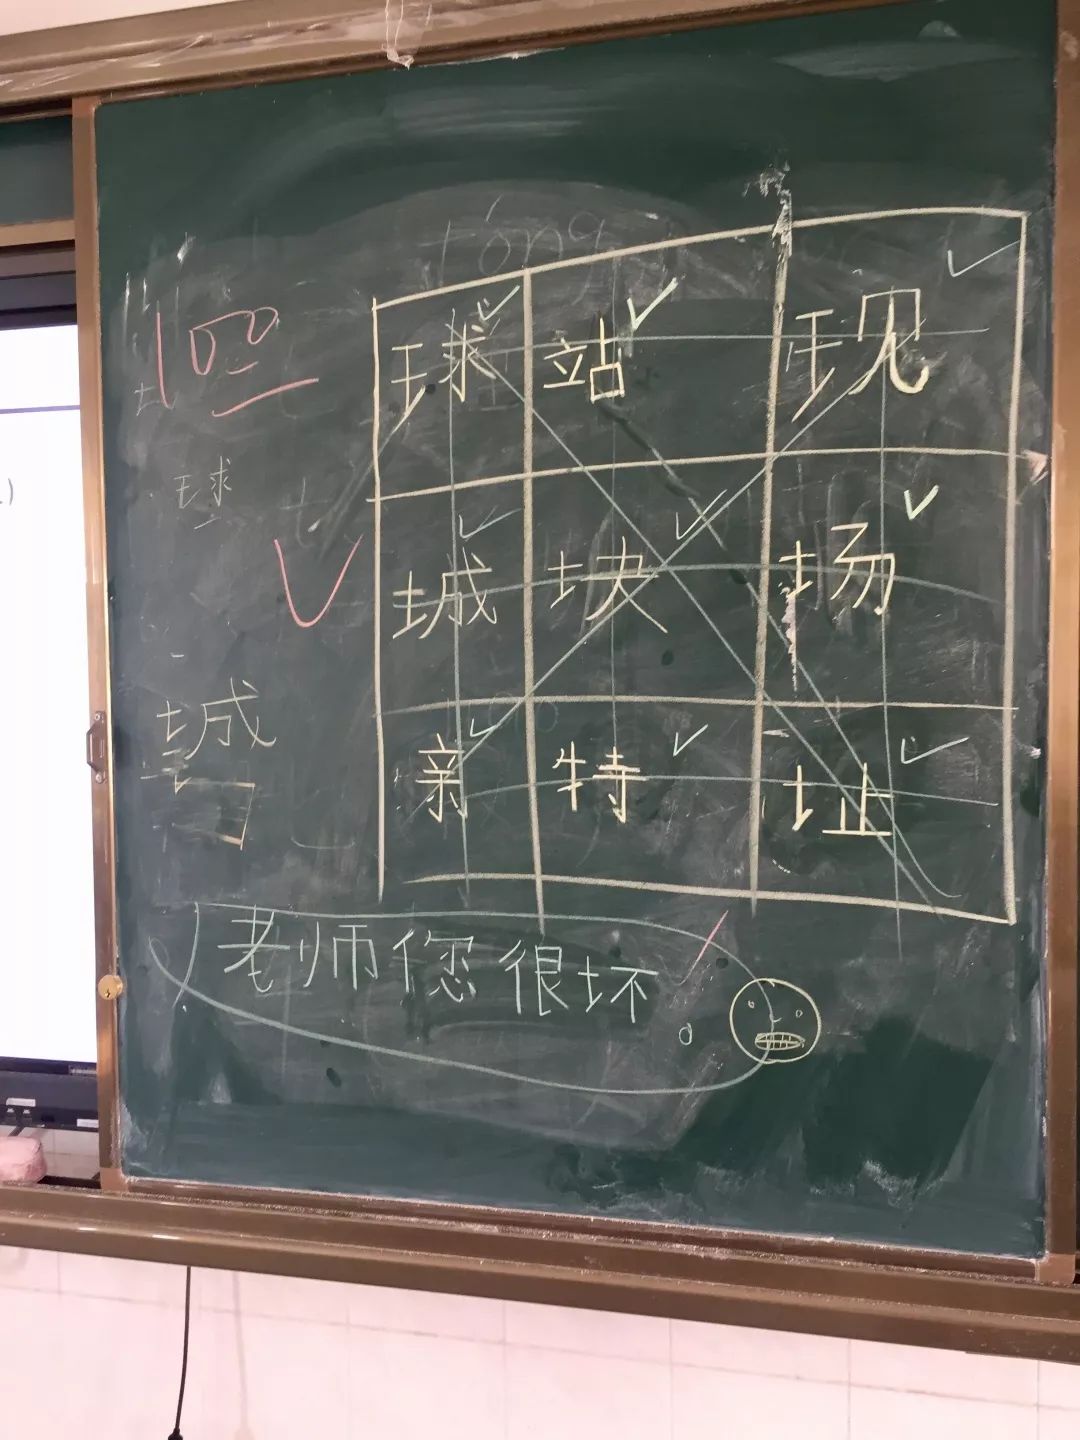 tóng
100
球 站 现
球
城 块 场
城
亲 特 址
老师您很坏